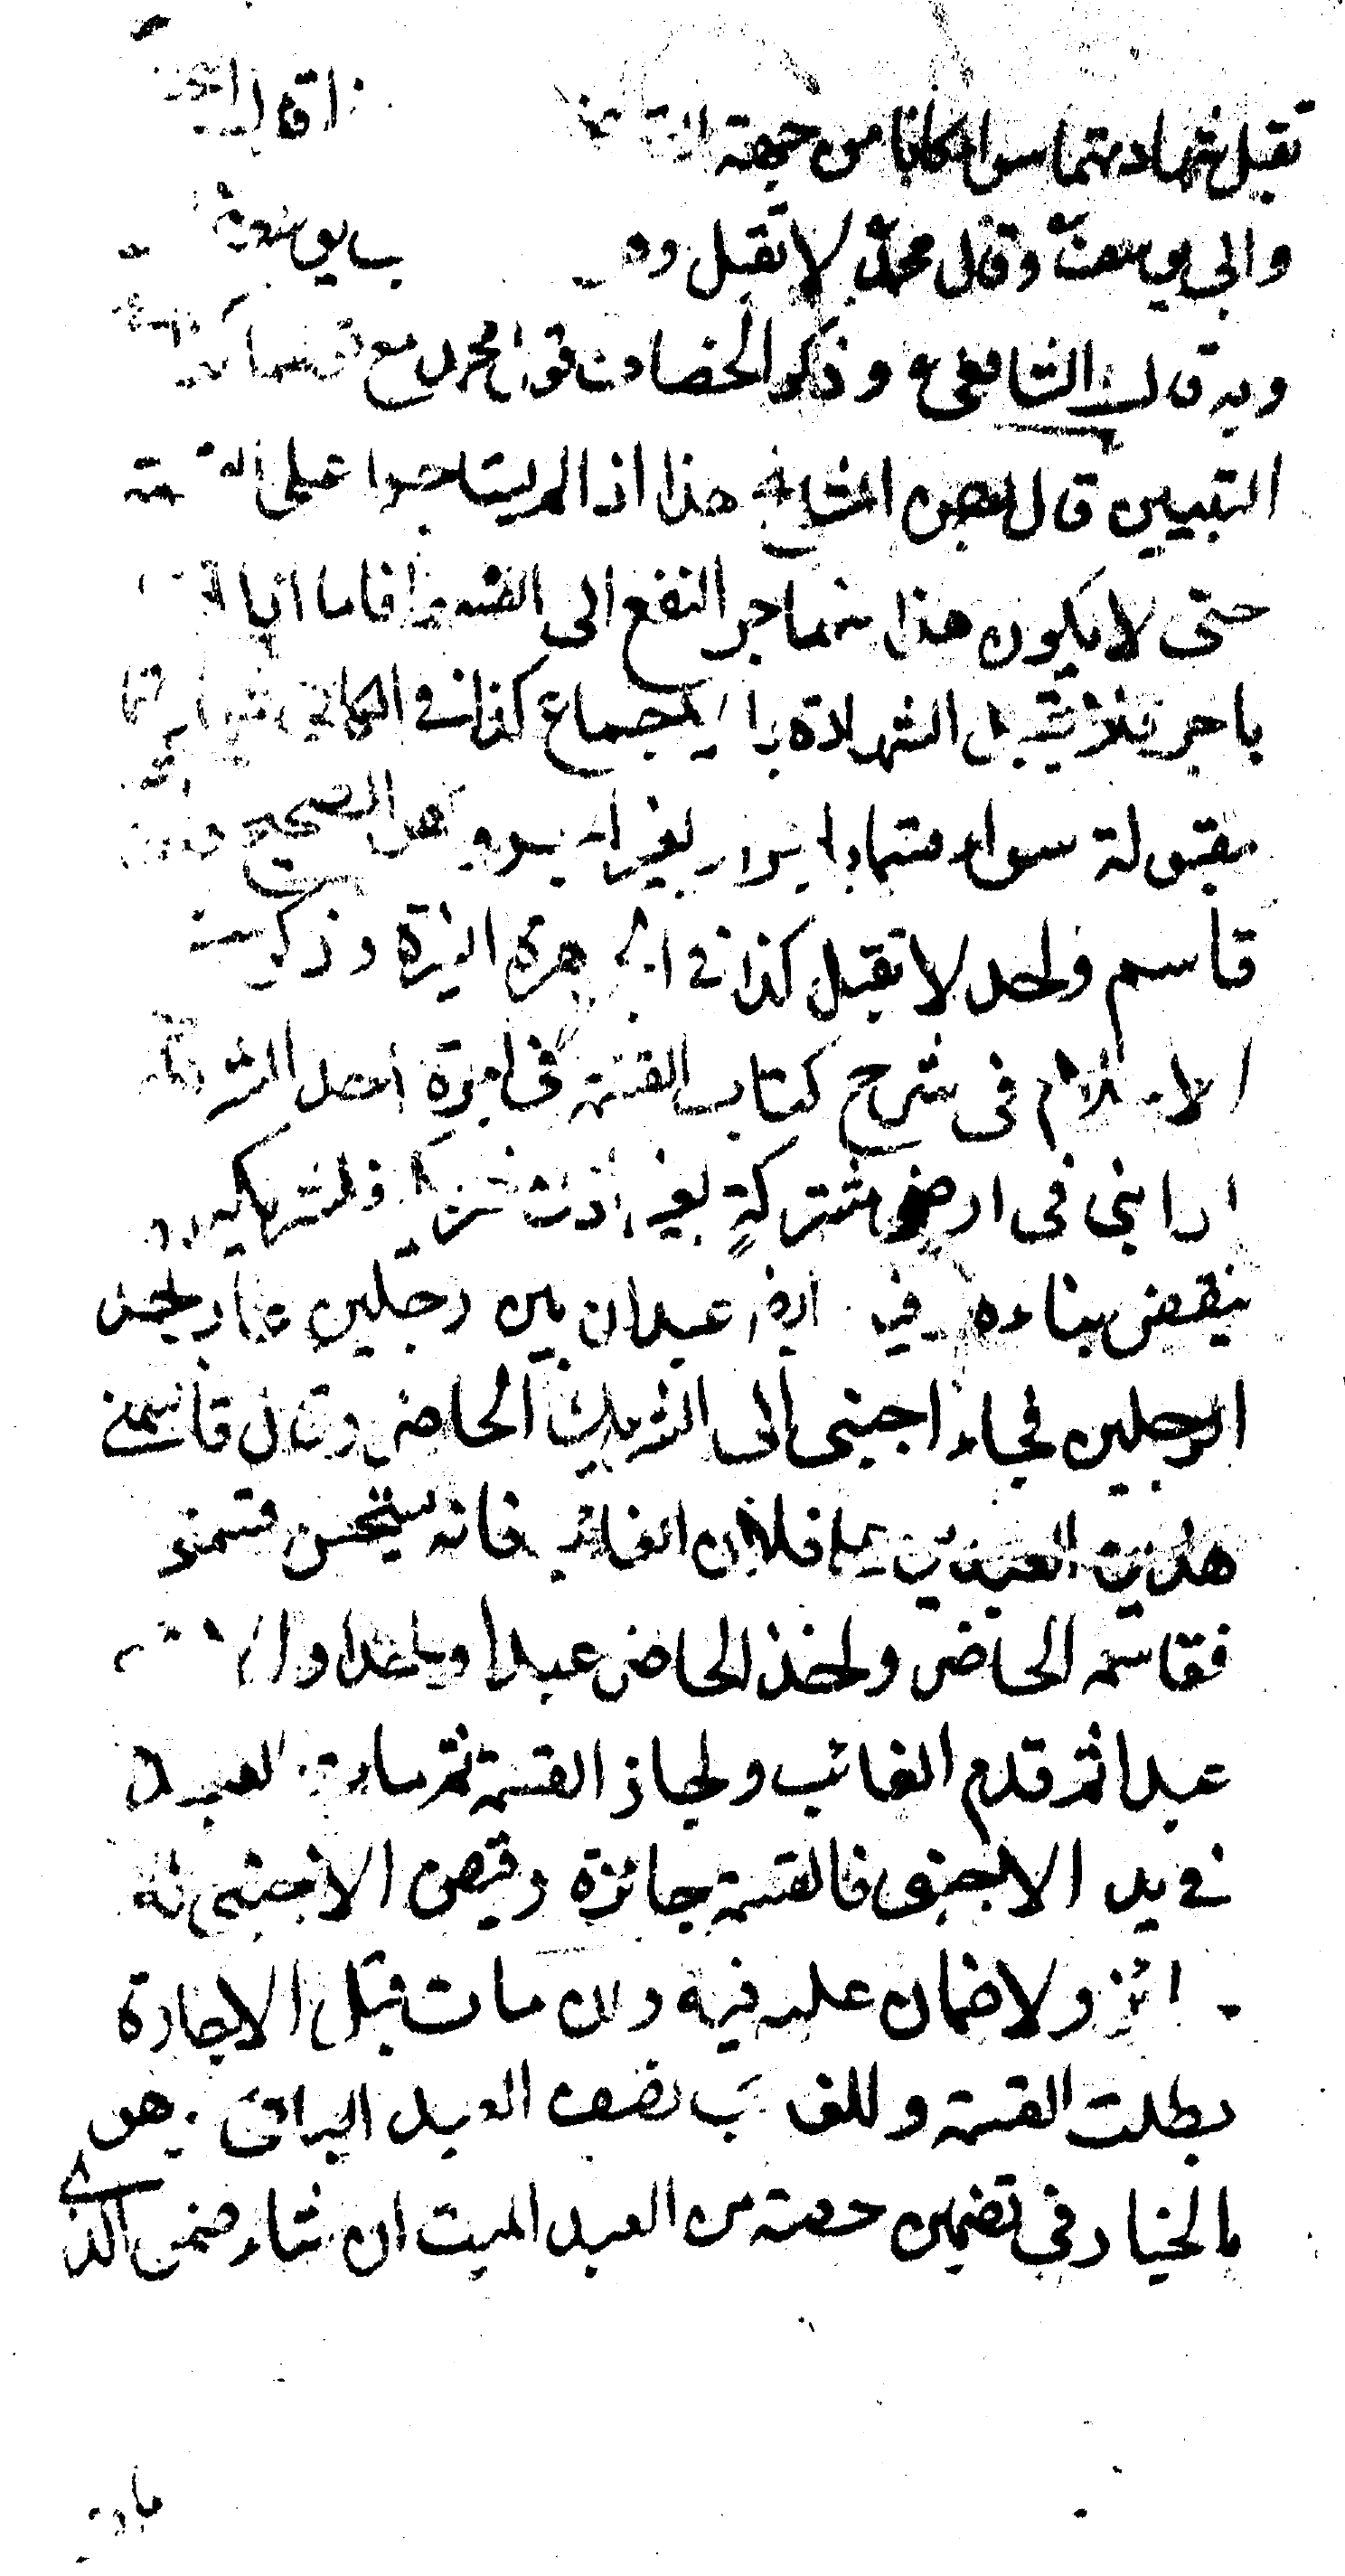 تقبل شهادتهما سواء كانا من جهة
وابي يوسف وقال محمد لا تقبل
وبه قال الشافعي وذكر الخصاف قول محمد مع قولهما
التبيين قال بعض المشايخ هذا اذا لم يستاجرا على القسمة
حتى لا يكون هذا منهما جر النفع الى انفسهما فاما اذا
باجر فلا تقبل الشهادة بالاجماع كذا في
مقبولة سواء قسما باجر او بغير اجر وهو الصحيح
قاسم واحد لا تقبل كذا في الجوهرة النيرة وذكر
الاسلام في شرح كتاب القسمة في احد الشركاء
اذا بنى في ارض مشتركة بغير اذن شريكه فلشريكه ان
ينقض بناءه عبدان بين رجلين غاب احد
الرجلين فجاء اجنبي الى الشريك الحاضر وقال قاسمني
هذين العبدين على فلان الغائب فانه سيجيز قسمتي
فقاسمه الحاضر واخذ الحاضر عبدا واخذ
عبدا ثم قدم الغائب واجاز القسمة ثم مات العبد
في يد الاجنبي فالقسمة جائزة وقبض الاجنبي له
جائز ولا ضمان عليه فيه وان مات قبل الاجازة
بطلت القسمة وللغائب نصف العبد الباقي وهو
بالخيار في تضمين حصته من العبد الميت ان شاء ضمن الذي
مات